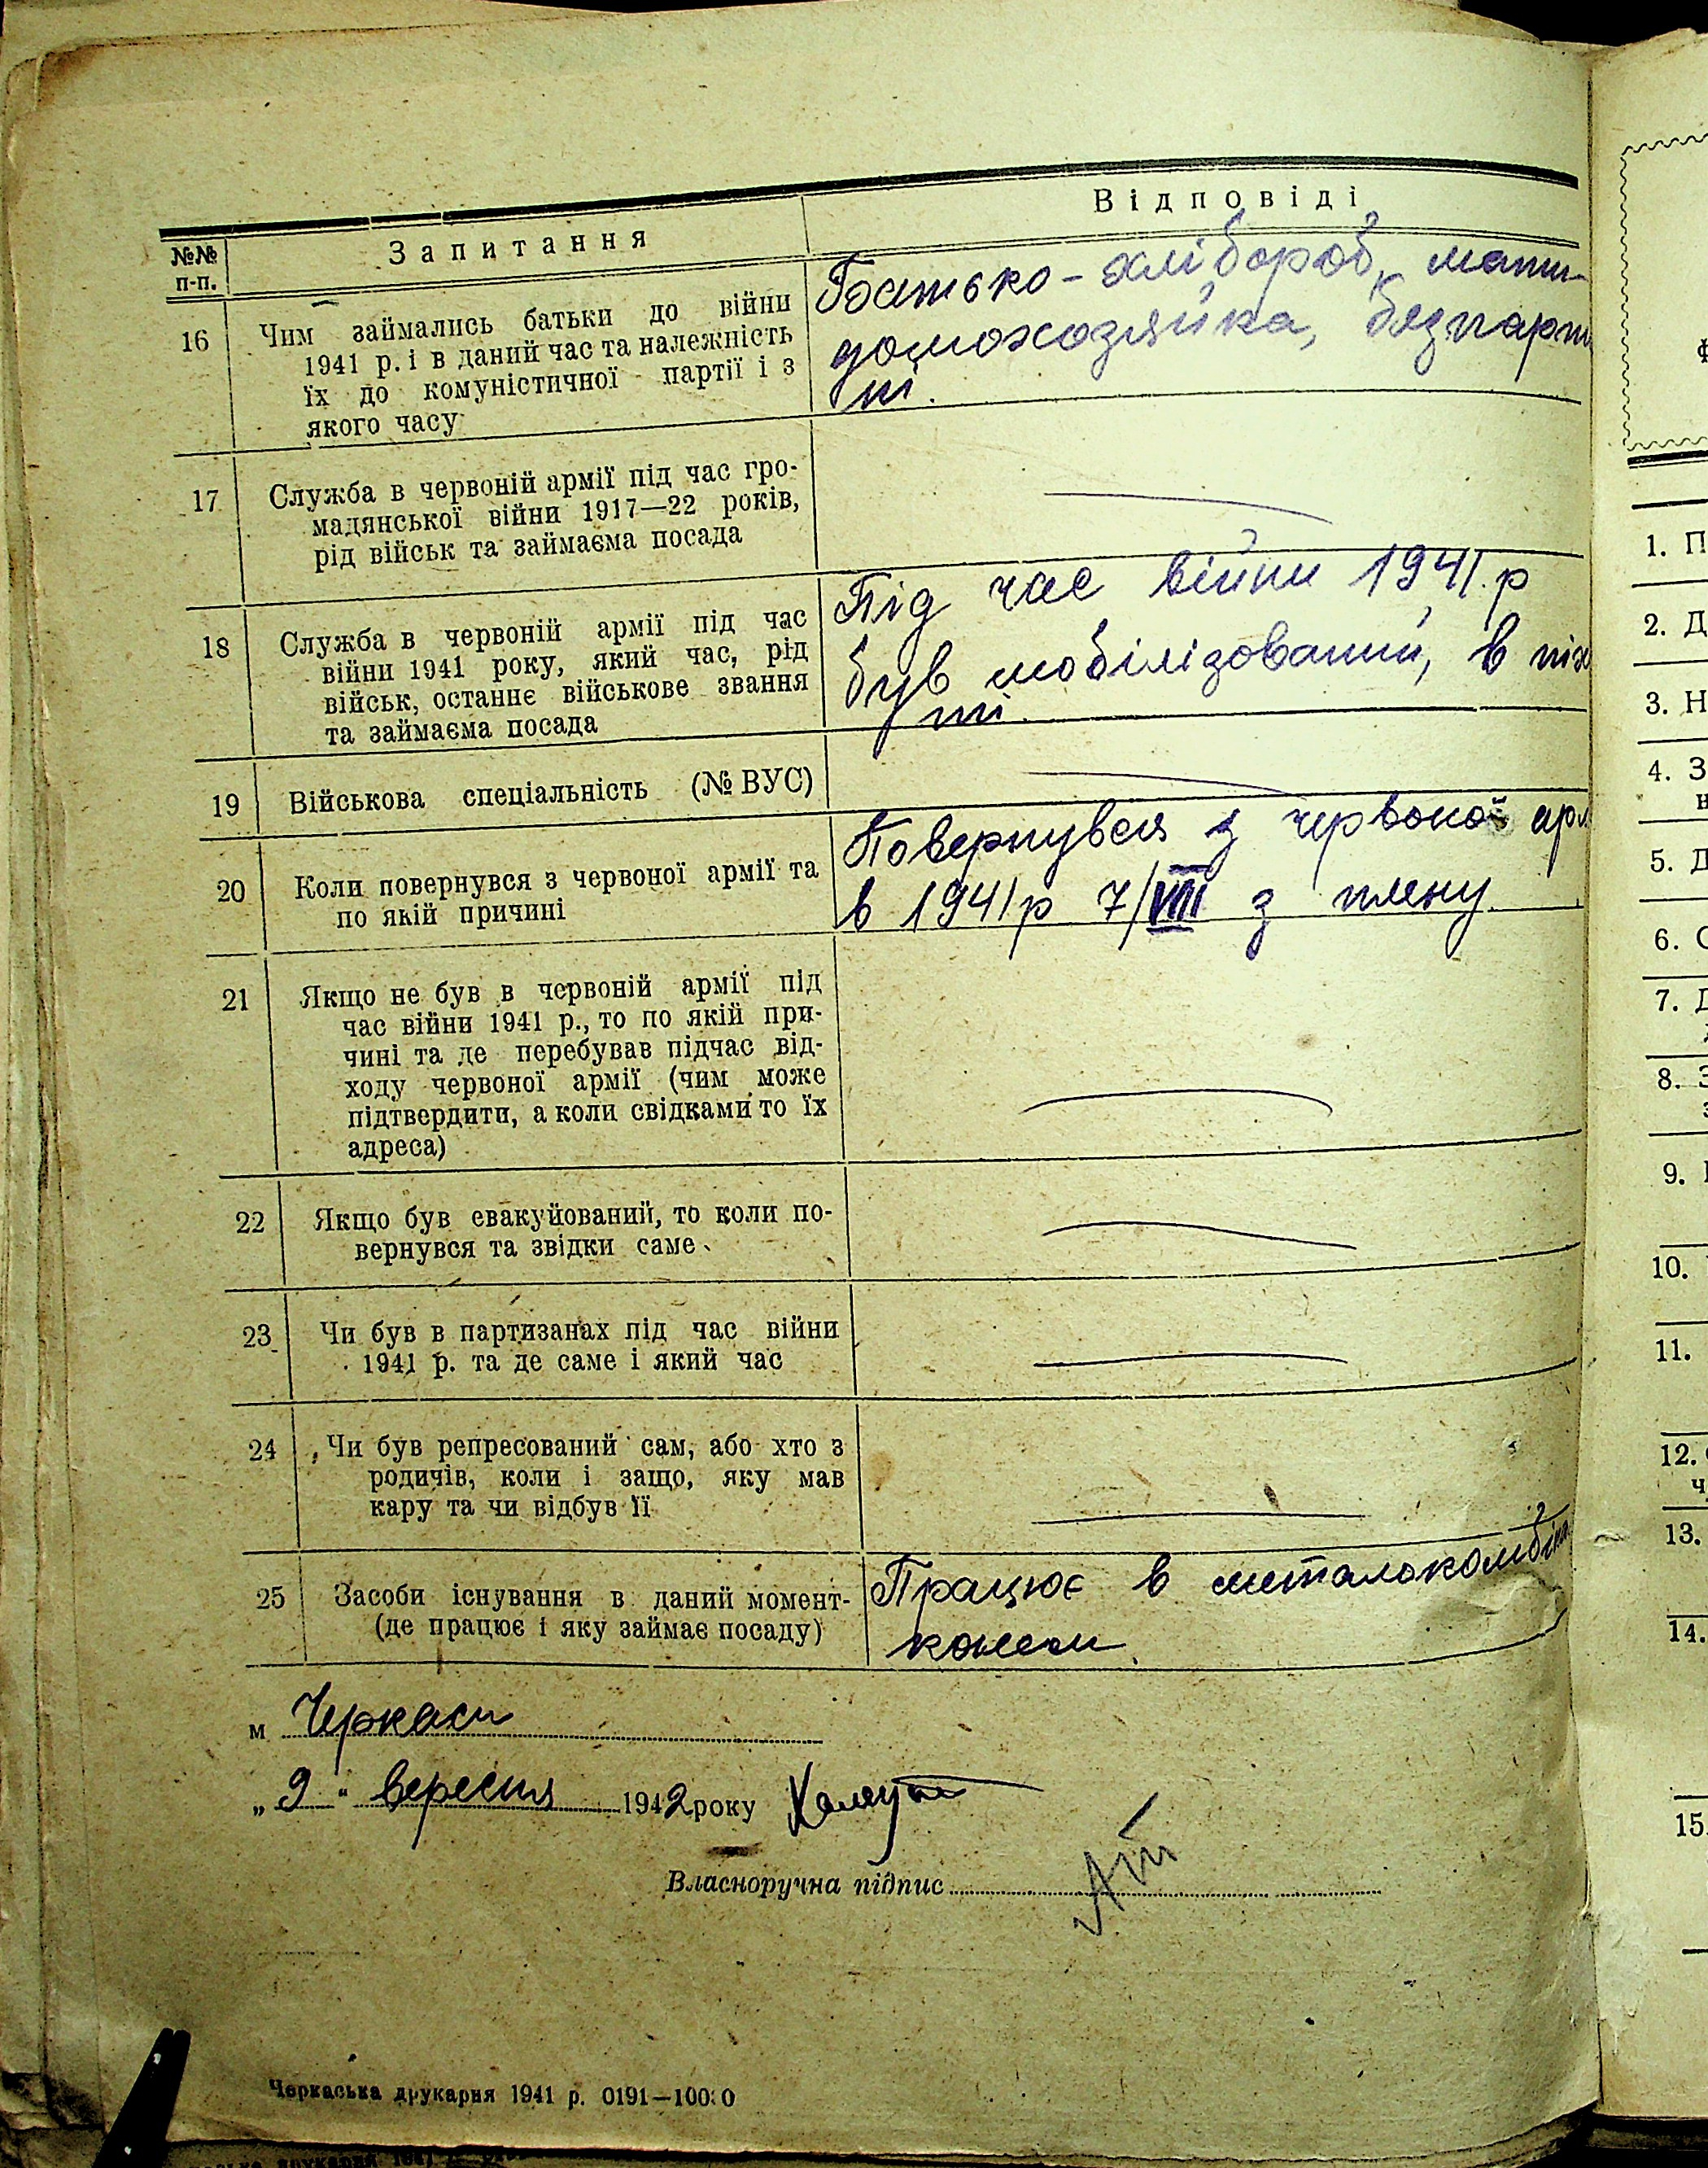 №№ п-п.
Запитання
Відповіді
16
Чим займались батьки до війни
1941 р. і в даний час та належність
їх до комуністичної партії і з
якого часу
Батько - хлібороб, мати-
домохозяйка, безпарт
ні.
17
Служба в червоній армії під час гро-
мадянської війни 1917—22 років,
рід військ та займаєма посада
18
Служба в червоній армії під час
війни 1941 року, який час, рід
військ, останнє військове звання
та займаєма посада
Під час війни 1941 р
був мобілізований, в піх
ті.
19
Військова спеціальність (№ ВУС)
20
Коли повернувся з червоної армії та
по якій причині
Повернувся з червоної арм
в 1941 р 7/VIII з плену.
21
Якщо не був в червоній армії під
час війни 1941 р., то по якій при-
чині та де перебував підчас від-
ходу червоної армії (чим може
підтвердити, а коли свідками то їх
адреса)
22
Якщо був евакуйований, то коли по-
вернувся та звідки саме
23
Чи був в партизанах під час війни
1941 р. та де саме і який час
24
Чи був репресований сам, або хто з
родичів, коли і защо, яку мав
кару та чи відбув її
25
Засоби існування в даний момент-
(де працює і яку займає посаду)
Працює в металокомбіна
м Черкаси
„ 9 “ вересня 1942 року
Власноручна підпис
Черкаська друкарня 1941 р. 0191—10000
1. П
2. Д
3. Н
4. З
н
5. Д
6. С
7. Д
8. З
з
9.
10.
11.
12.
ч
13.
14.
15.